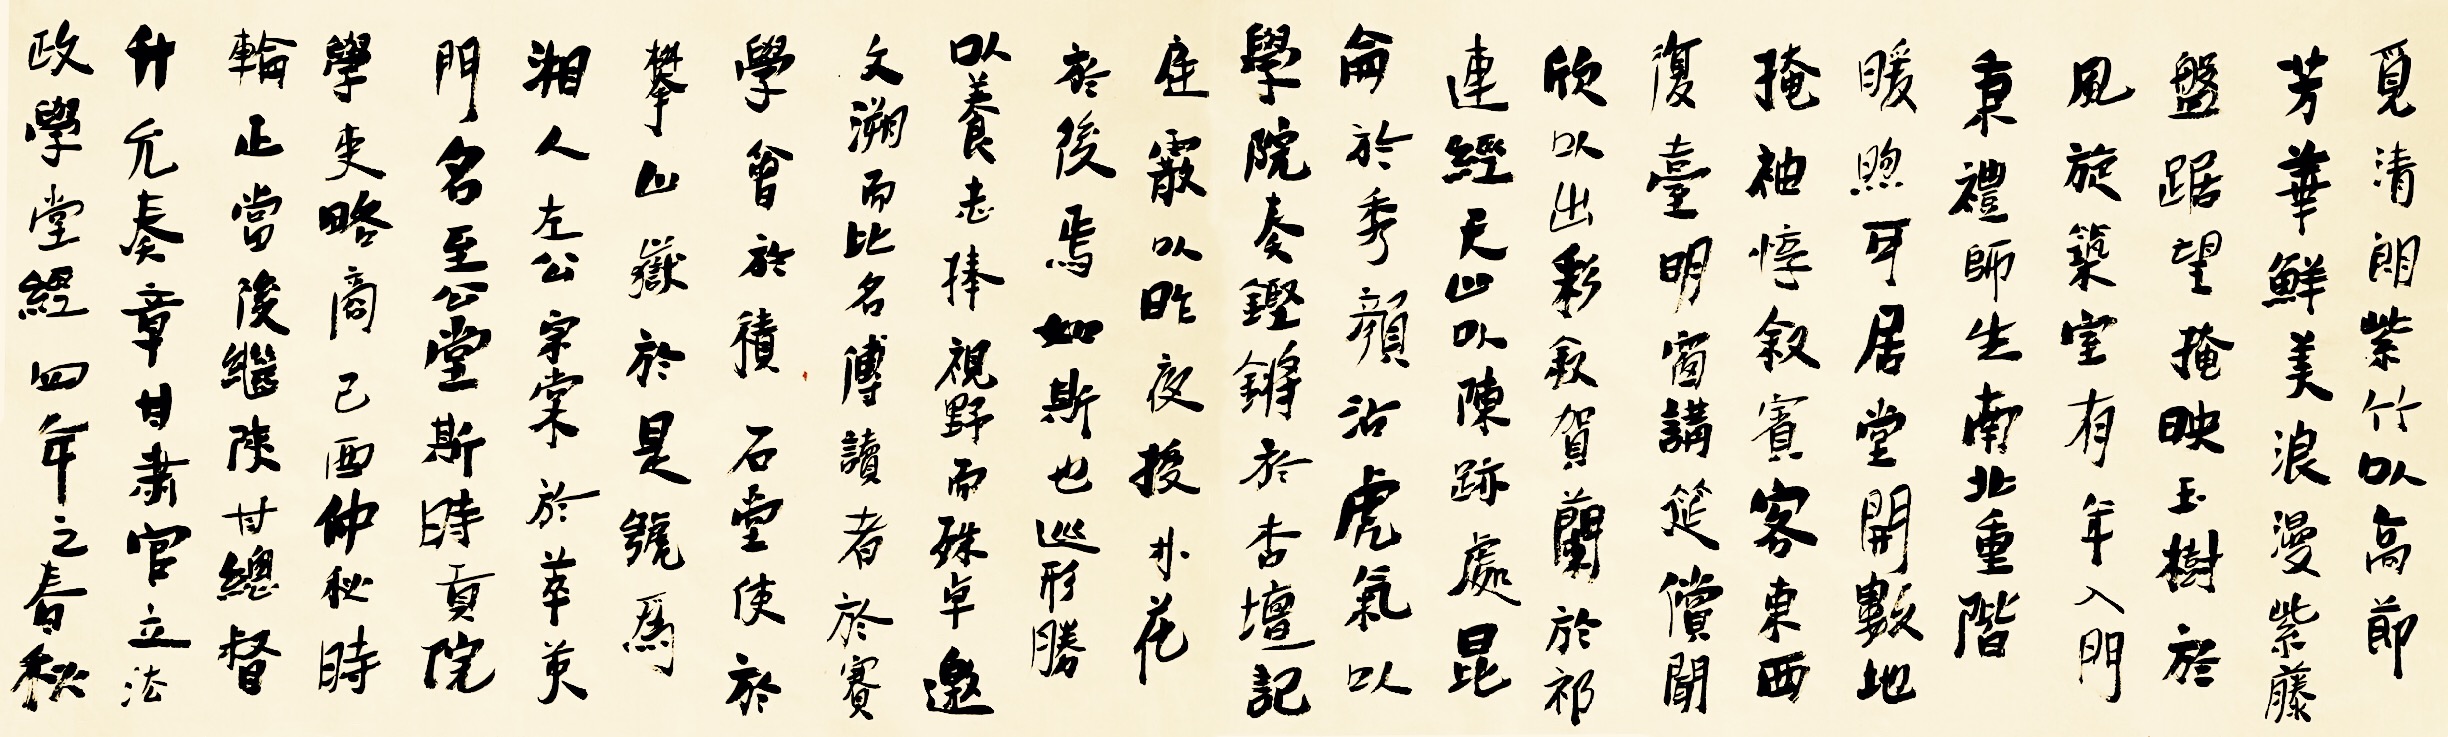 覓清朗紫竹以高節
芳華鮮美浪漫紫藤
盤踞望掩映玉樹於
風旋築室有年入門
秉禮師生南北重階
暖煦耳居堂開數地
掩袖惇叙賓客東西
復臺明窗講筵償聞
欣以出彩敘賀蘭於祁
連經天山以陳跡處昆
侖於秀顏沾虎氣以
學院奏鏗鏘於杏壇記
庭霰以昨夜授朴花
於後焉如斯也巡形勝
以養志捧視野而殊卓邀
文溯而比名傅讀者於賽
學會於積石堂使於
攀山嶽於是號為
湘人左公宗棠於萃英
門名至公堂斯時貢院
學吏略商己酉仲秋時
輪正當後繼陝甘總督
升允奏章甘肅官立法
政學堂經四年之春秋